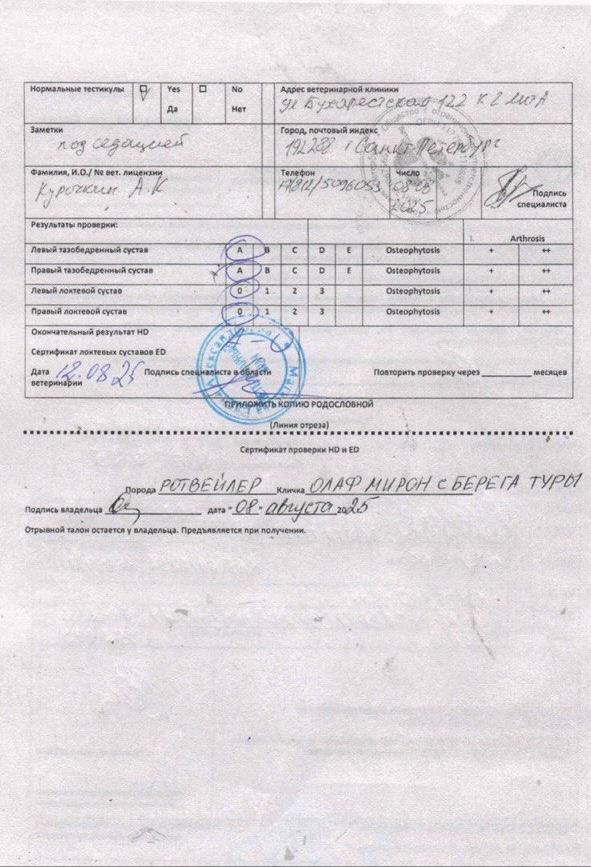 Нормальные тестикулы Yes Да No Нет
Адрес ветеринарной клиники
ул Бухарестская 122 к 2 лит А
Заметки
под седацией
Город, почтовый индекс
192288 г Санкт-Петербург
Фамилия, И.О./ № вет. лицензии
Курочкин А.К
Телефон
Число
08.08
2025
Подпись специалиста
Результаты проверки:
Arthrosis
Левый тазобедренный сустав A B C D E Osteophytosis + ++
Правый тазобедренный сустав A B C D E Osteophytosis + ++
Левый локтевой сустав 0 1 2 3 Osteophytosis + ++
Правый локтевой сустав 0 1 2 3 Osteophytosis + ++
Окончательный результат HD
Сертификат локтевых суставов ED
Дата 12.08.25 Подпись специалиста в области ветеринарии
Повторить проверку через ________ месяцев
ПРИЛОЖИТЬ КОПИЮ РОДОСЛОВНОЙ
(Линия отреза)
Сертификат проверки HD и ED
Порода РОТВЕЙЛЕР Кличка ОЛАФ МИРОН с БЕРЕГА ТУРЫ
Подпись владельца дата "08" августа 2025
Отрывной талон остается у владельца. Предъявляется при получении.